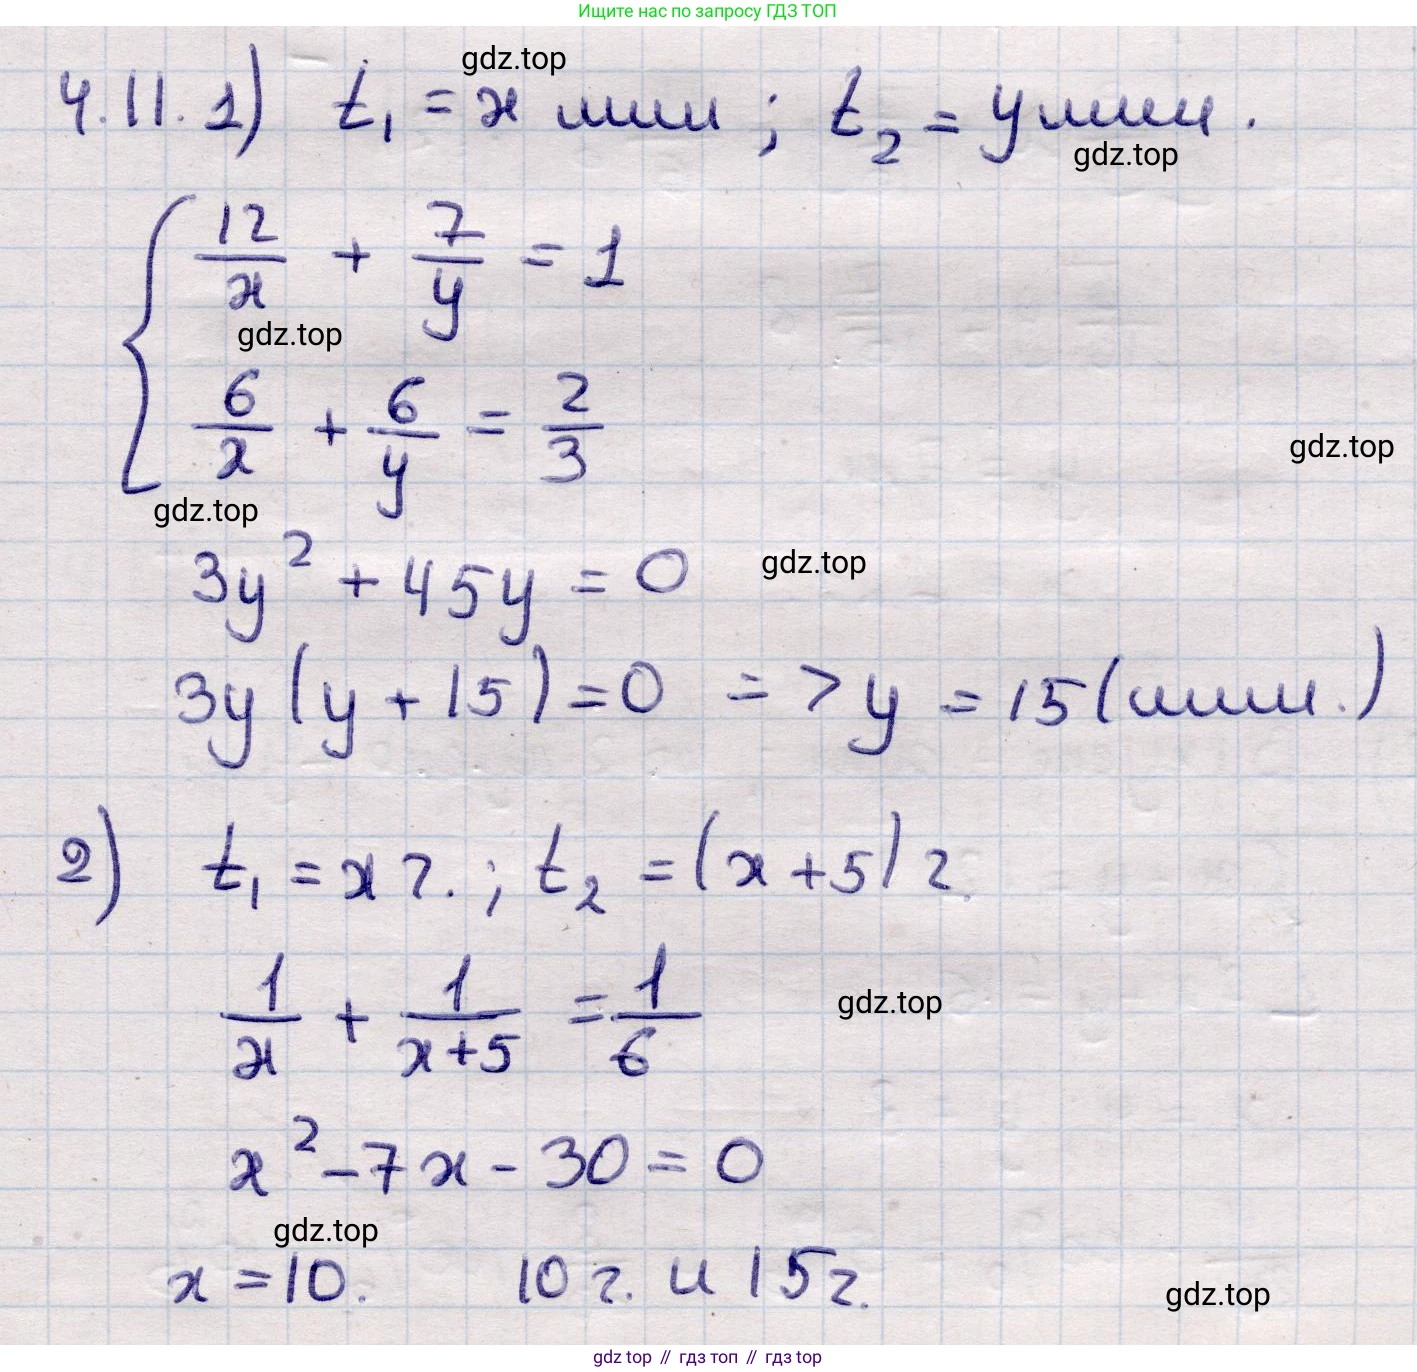 Ищите нас по запросу ГДЗ ТОП
gdz.top
4.11. 1) t₁ = x мин ; t₂ = y мин .
gdz.top
12/x + 7/y = 1
gdz.top
6/x + 6/y = 2/3
gdz.top
gdz.top
3y² + 45y = 0
gdz.top
3y (y + 15) = 0 => y = 15 (мин.)
2) t₁ = x ч. ; t₂ = (x + 5) ч.
1/x + 1/(x+5) = 1/6
gdz.top
x² - 7x - 30 = 0
gdz.top
x = 10. 10 ч. и 15 ч.
gdz.top
gdz top // гдз топ // gdz top